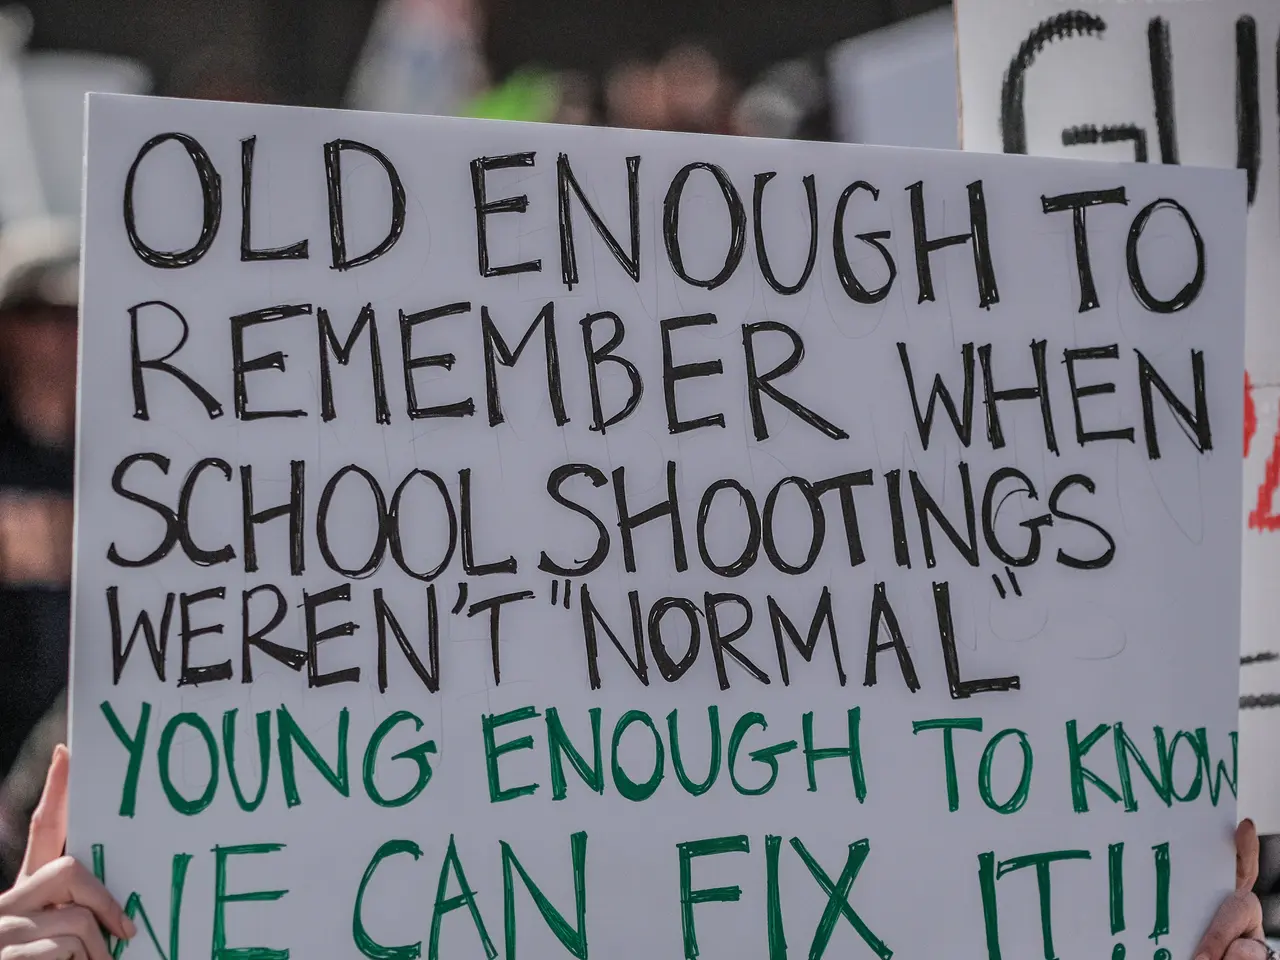 OLD ENOUGH TO
REMEMBER WHEN
SCHOOL SHOOTINGS
WEREN'T "NORMAL"
YOUNG ENOUGH TO KNOW
WE CAN FIX IT!!